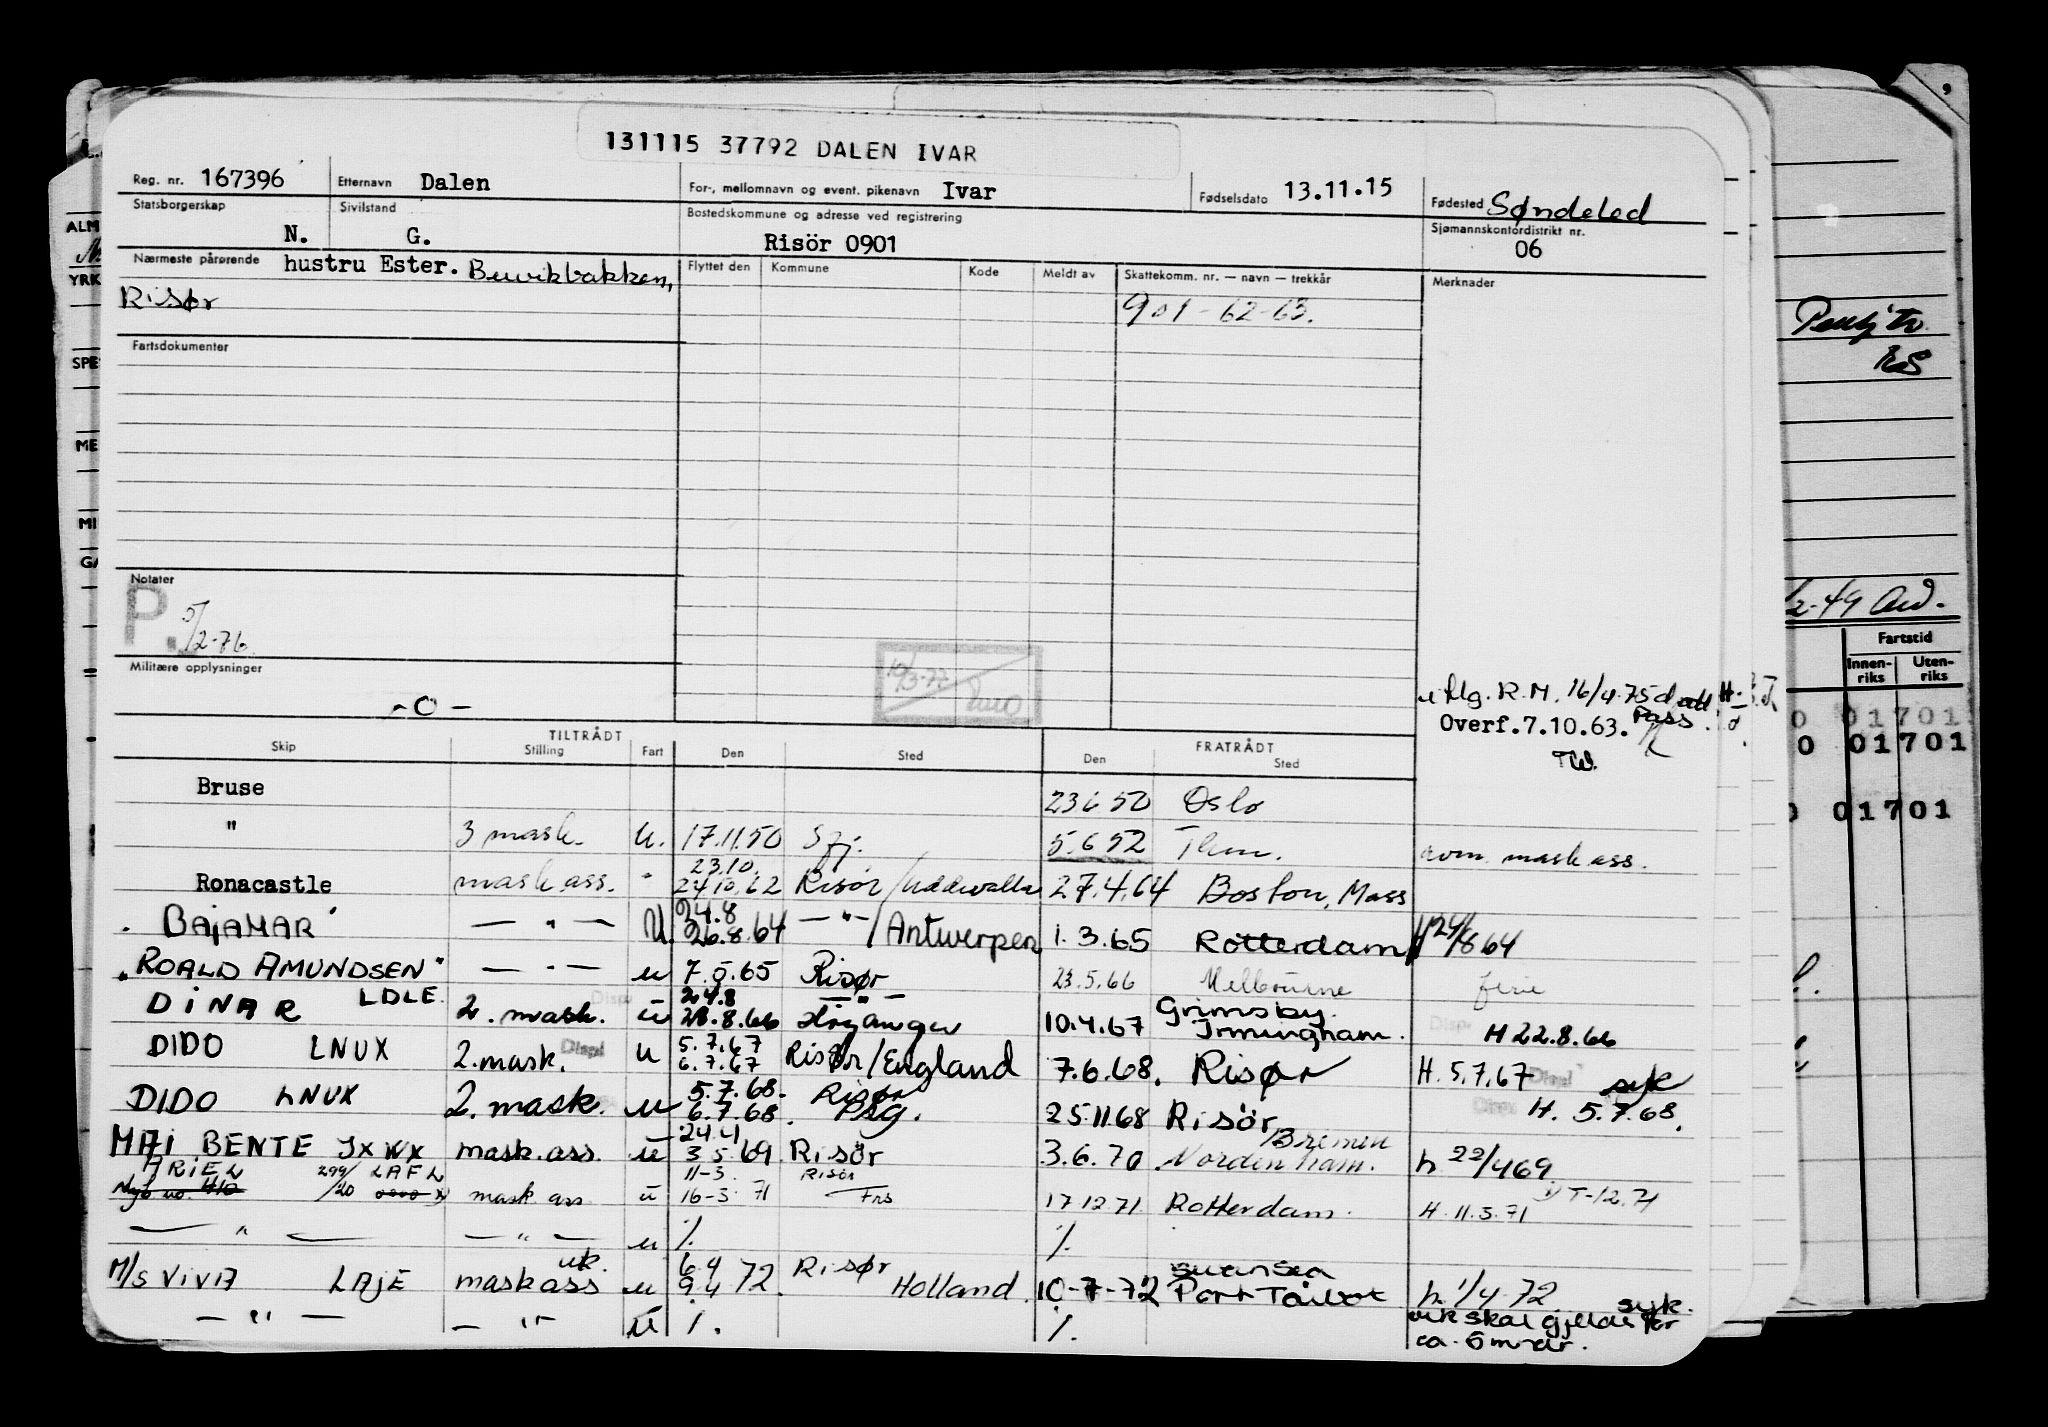 131115 37792 DALEN IVAR
Reg. nr. 167396 Etternavn Dalen For-, mellomnavn og event. pikenavn Ivar Fødselsdato 13.11.15 Fødested Søndeled
Statsborgerskap N. Sivilstand G. Bostedskommune og adresse ved registrering Risör 0901 Sjømannskontordistrikt nr. 06
Nærmeste pårørende hustru Ester. Flyttet den Kommune Kode Meldt av Skattekomm. nr. — navn — trekkår Merknader
Risør 901-62-63.
Fartsdokumenter
Notater
P. 5/2-76.
Militære opplysninger
-0-
16/4-75
Overf.7.10.63. Pass
TILTRÅDT FRATRÅDT
Skip Stilling Fart Den Sted Den Sted
Bruse 23 6 50 Oslo
" 3 mask. U. 17.11.50 5.6 52 mask ass.
23.10.
Ronacastle mask ass. " 24.10.62 Risør/Uddevalla 27.4.64 Boston, Mass
24.8
"BAJAMAR" — " — U. 26.8.64 — " —/Antwerpen 1.3.65 Rotterdam H 24/8 64
"ROALD AMUNDSEN" — " — u 7.5.65 Risør 23.5.66 Melbourne ferie
24.8 — " — Grimsby.
DINAR LDLE 2. mask. u 28.8.66 10.4.67 Immingham. H 22.8.66
5.7.67
DIDO LNUX 2. mask. Disp u 6.7.67 Risør/England 7.6.68. Risør H. 5.7.67 syk
5.7.68. Risør
DIDO LNUX 2. mask. u 6.7.68. 25.11.68 Risör H. 5.7.68.
24.4 Bremen
MAI BENTE JXWX mask.ass. u 3.5.69. Risör 3.6.70 Nordenham. h 22/4 69.
ARIEL 299/20 LAFL 11-3 Risör
Nyb no 410 mask ass u 16-3-71 Frs 17.12.71 Rotterdam. H. 11.3.71
— " — — " — u % %
vik. 6.4 Risør Swansea
M/S VIVA LAJE mask ass u 9.4 72. Holland. 10-7-72 Port Talbot h. 1/4-72. syk.
— " — — " — u %. %. vik skal gjelde for
ca. 6 m-der.
ALM
YRK
SPE
ME
MI
GA
-49
Fartstid
Innen-riks Uten-riks
0 01701
0 01701
0 01701